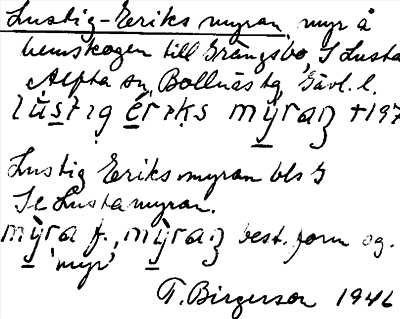 Lustig-Eriks myran, myr å
hemskogen till Grängsbo, S Lusta
Alfta sn, Bollnäs tg, Gävl. l.
lùstig ériks mỳran +197
Lustig Eriks myran bls S
Se Lustamyran.
mỳra f., mỳran best. form og.
'myr'
T. Birgerson 1946